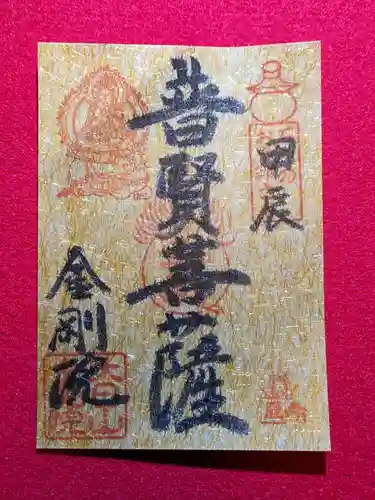 甲辰
普賢菩薩
金剛院